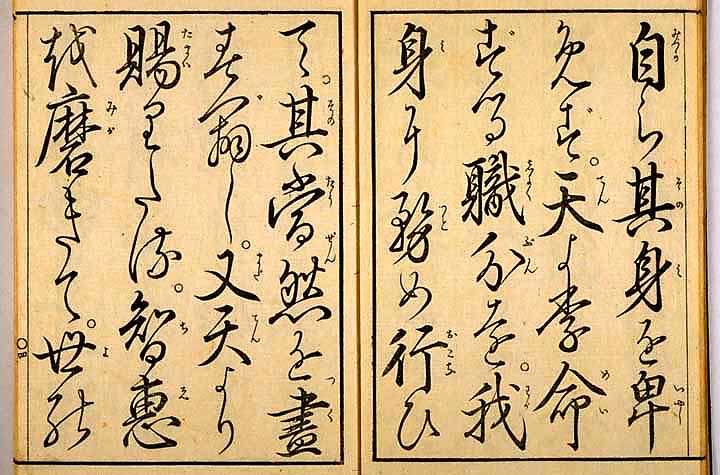 自ら其身を卑
めず。天より命
ずる職分を。我
身に務め行ひ
て。其當然を盡
すべし。又天より
賜りたる。智惠
を磨きて。世の